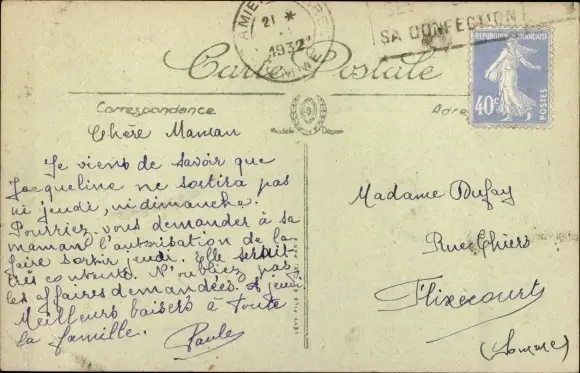 AMIENS GARE
21 *
1932
SOMME
SA CONFECTION
REPUBLIQUE FRANÇAISE
40c
POSTES
Carte Postale
Correspondance
Modèle Déposé
Chère Maman
Je viens de savoir que
Jacqueline ne sortira pas
ni jeudi, ni dimanche.
Pourriez-vous demander à sa
maman l'autorisation de la
faire sortir jeudi. Elle serait
très contente. N'oubliez pas
les affaires demandées. A jeudi
Meilleurs baisers à toute
la famille.
Paule
Madame Dufay
Rue Thiers
Flixecourt
(Somme)